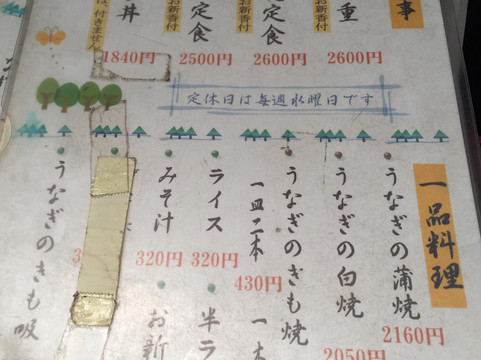 事
重
お新香付
2600円
定食
お新香付
2600円
定食
お新香付
2500円
丼
付きません
1840円
定休日は毎週水曜日です
一品料理
うなぎの蒲焼
2160円
うなぎの白焼
2050円
うなぎのきも焼
一皿二本
430円
一本
ライス
320円
半ラ
みそ汁
320円
お新
うなぎのきも吸
3